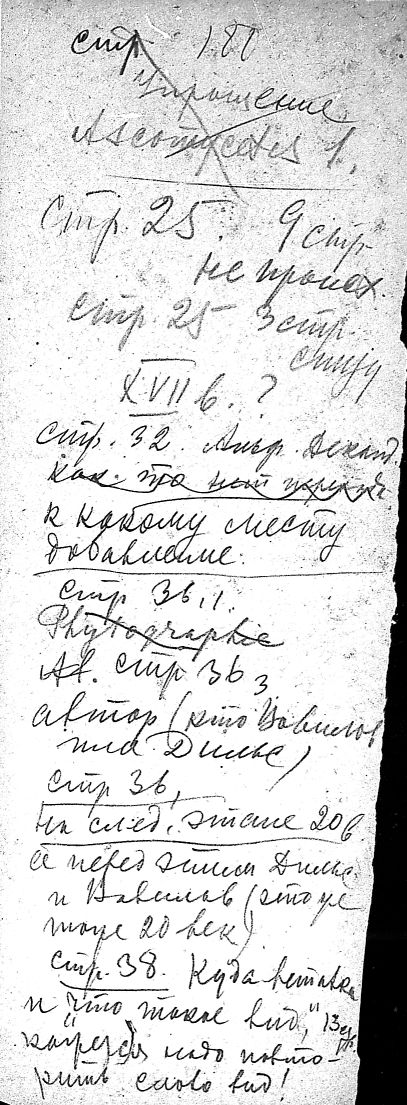 стр 188
Упрощение
Ascomycetes
стр. 25. 9 стр
не происх.
стр. 25 3 стр.
снизу
XVII в. ?
стр. 32. Альф. Декандо
как то нет
к какому месту
добавление.
стр 36, 1.
Phytographie
Ав. стр 36 3
автор (кто Вавилов
или Дильс)
стр 36,
На след. этапе 20 в.
а перед этим Дильс
и Вавилов (это уже
тоже 20 век)
стр. 38. Куда вставка
и "что такое вид,"
кажется надо повто-
рить слово вид!